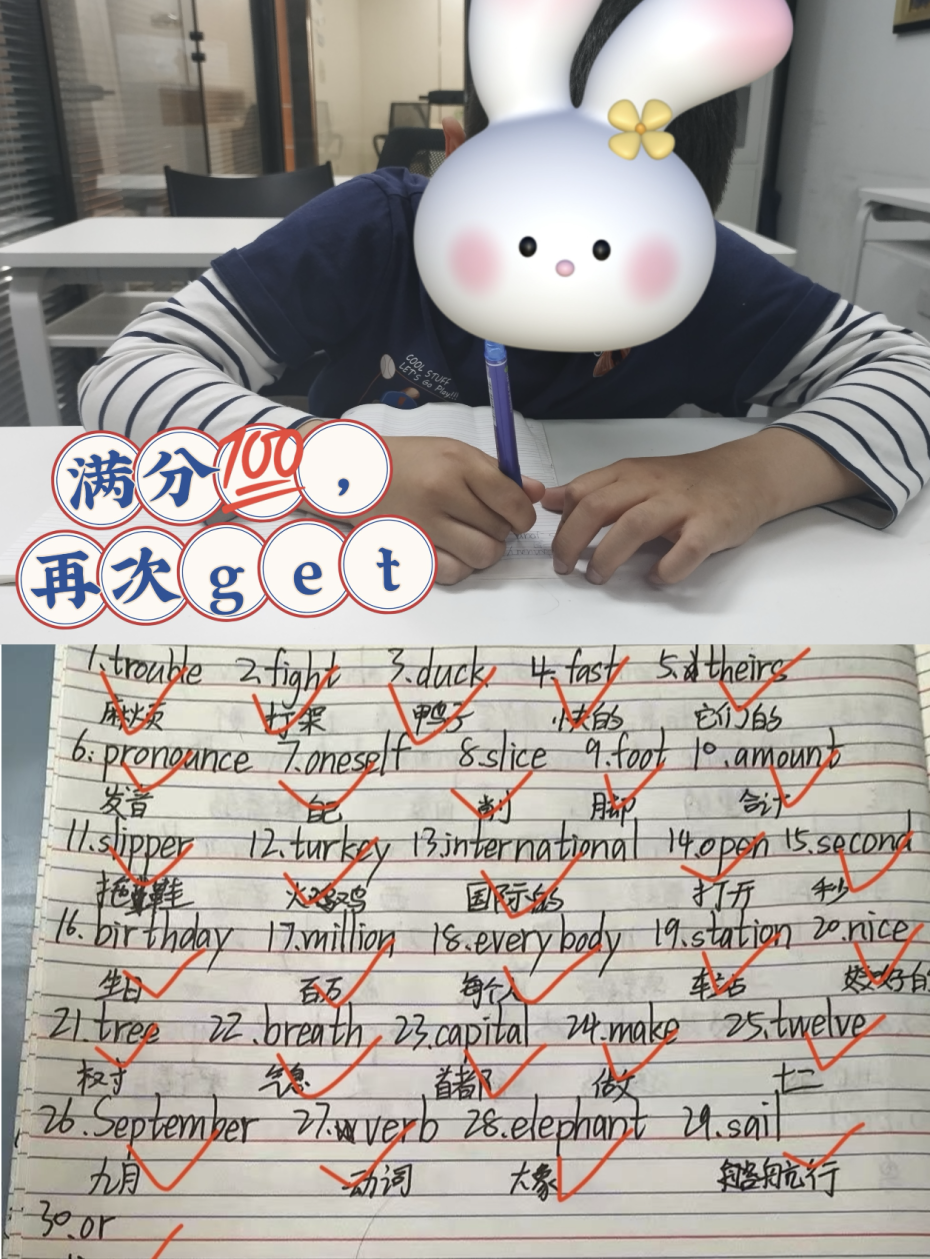 COOL STUFF
LET'S Go Play!!!
满分100，
再次get
1.trouble 2.fight 3.duck 4.fast 5.theirs
麻烦 打架 鸭子 快的 它们的
6.pronounce 7.oneself 8.slice 9.foot 10.amount
发音 自己 削 脚 合计
11.slipper 12.turkey 13.international 14.open 15.second
拖鞋 火鸡 国际的 打开 秒
16.birthday 17.million 18.everybody 19.station 20.nice
生日 百万 每个人 车站 好的
21.tree 22.breath 23.capital 24.make 25.twelve
树 气息 首都 做 十二
26.September 27.verb 28.elephant 29.sail
九月 动词 大象 航行
30.or